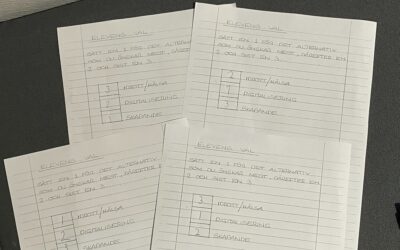 ELEVENS VAL
SÄTT EN 1 FÖR DET ALTERNATIV
SOM DU ÖNSKAR MEST, DÄREFTER EN
2 OCH SIST EN 3.
3 IDROTT/HÄLSA
2 DIGITALISERING
1 SKAPANDE
ELEVENS VAL
SÄTT EN 1 FÖR DET ALTERNATIV
SOM DU ÖNSKAR MEST, DÄREFTER EN
2 OCH SIST EN 3.
2 IDROTT/HÄLSA
1 DIGITALISERING
3 SKAPANDE
ELEVENS VAL
SÄTT EN 1 FÖR DET ALTERNATIV
SOM DU ÖNSKAR MEST, DÄREFTER EN
2 OCH SIST EN 3.
1 IDROTT/HÄLSA
2 DIGITALISERING
SKAPANDE
ELEVENS VAL
SÄTT EN 1 FÖR DET ALTERNATIV
SOM DU ÖNSKAR MEST, DÄREFTER EN
2 OCH SIST EN 3.
3 IDROTT/HÄLSA
1 DIGITALISERING
2 SKAPANDE